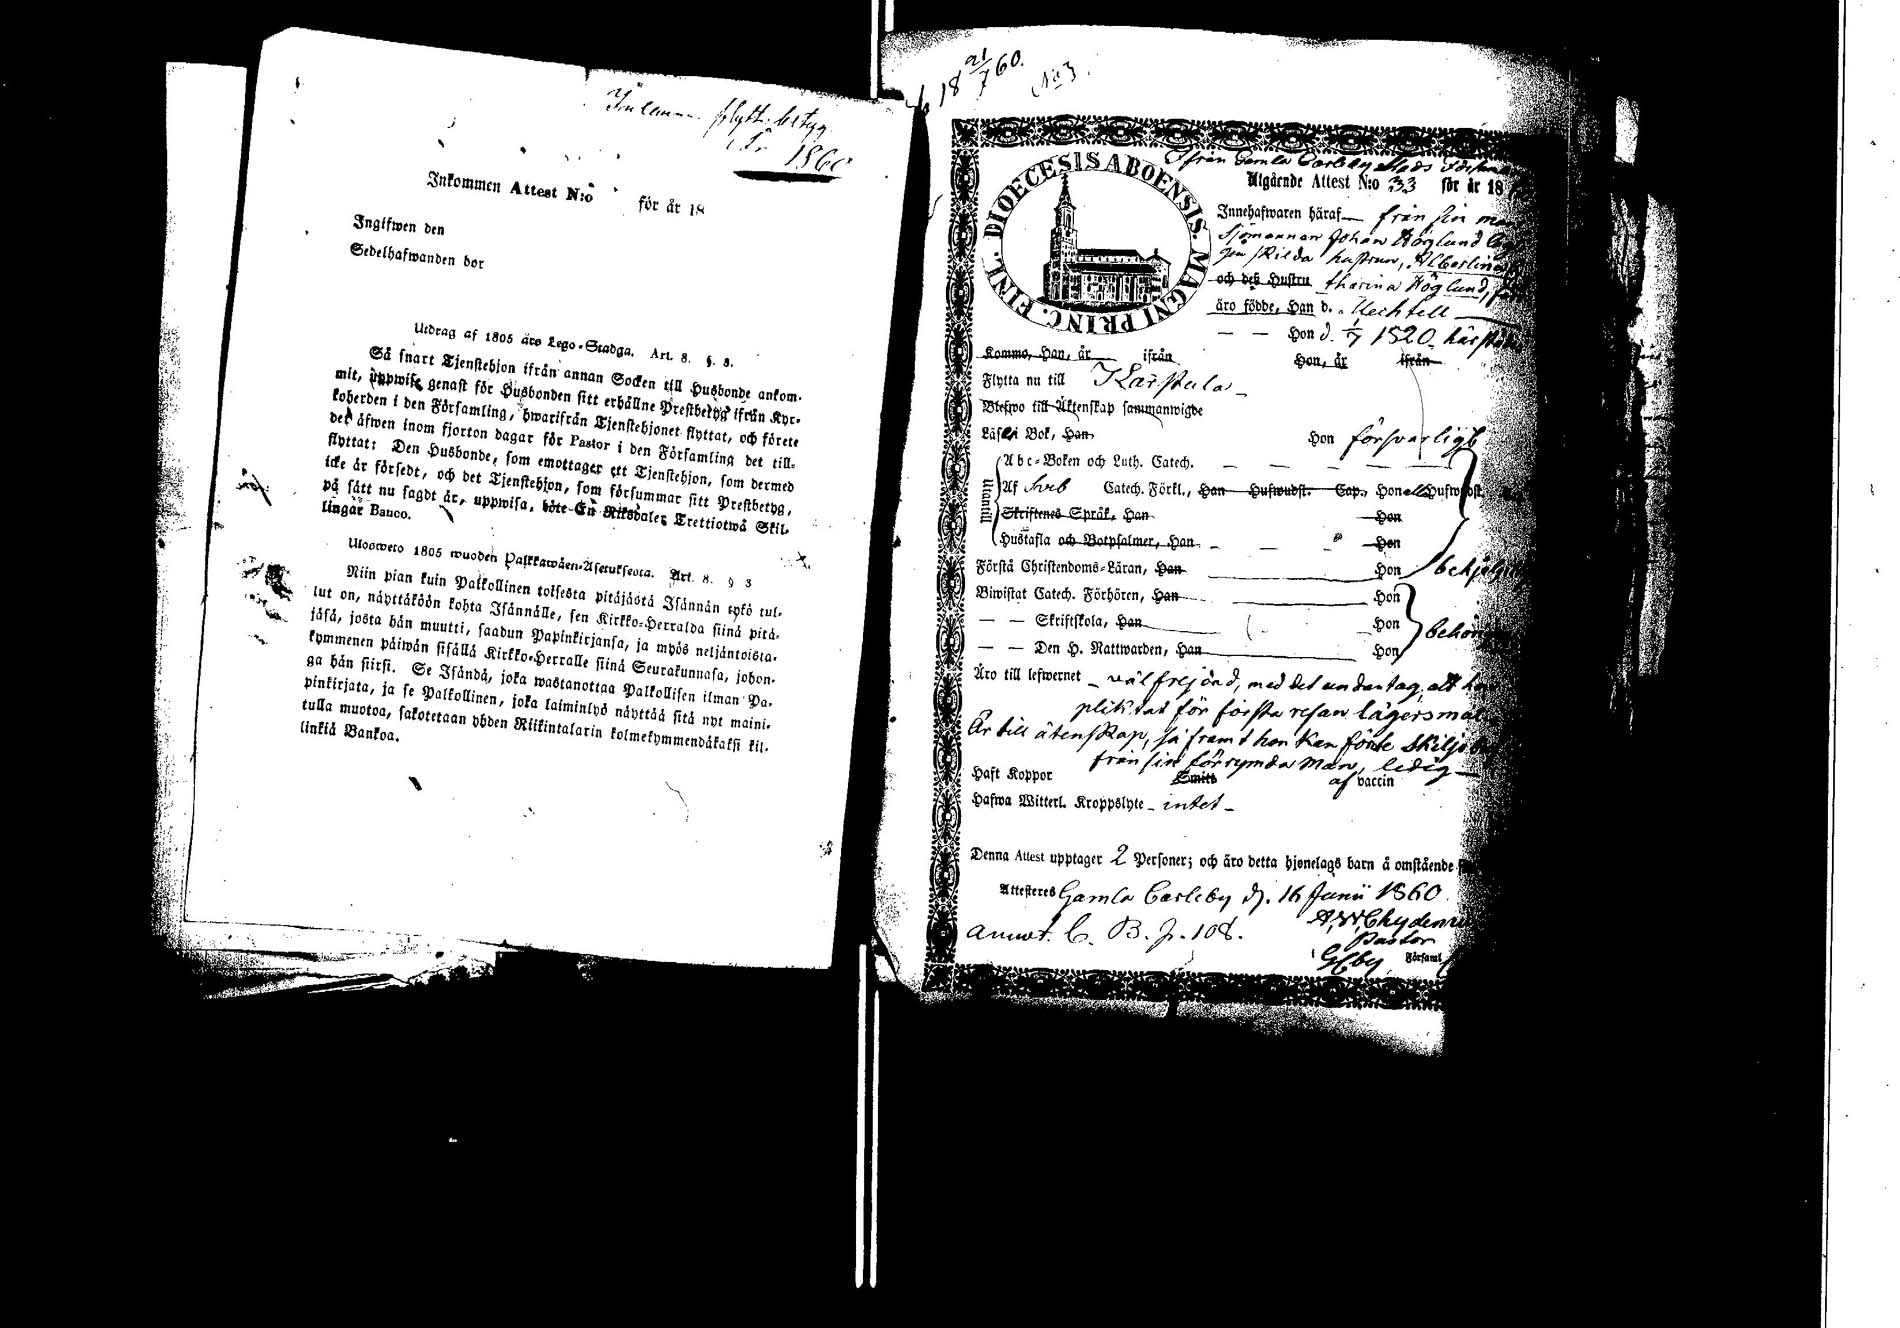 flytt. betyg
1860
Inkommen Attest N:o för år 18
Ingifwen den
Sedelhafwanden bor
Utdrag af 1805 års Lego-Stadga. Art. 8. §. 3.
Så snart Tjenstehjon ifrån annan Socken till Husbonde ankom-
mit, uppwise genast för Husbonden sitt erhållne Prestbetyg ifrån Kyr-
koherden i den Församling, hwarifrån Tjenstehjonet flyttat, och förete
det äfwen inom fjorton dagar för Pastor i den Församling det till-
flyttat: Den Husbonde, som emottager ett Tjenstehjon, som dermed
icke är försedt, och det Tjenstehjon, som försummar sitt Prestbetyg,
på sätt nu sagdt är, uppwisa, böte En Riksdaler Trettiotwå Skil-
lingar Banco.
Ulosweto 1805 wuoden Palkkawäen-Asetuksesta. Art. 8. § 3
Niin pian kuin Palkollinen toisesta pitäjästä Isännän tykö tul-
lut on, näyttäköön kohta Isännälle, sen Kirkko-Herralda siinä pitä-
jäsä, josta hän muutti, saadun Papinkirjansa, ja myös neljäntoista-
kymmenen päiwän sisällä Kirkko-Herralle siinä Seurakunnasa, johon-
ga hän siirsi. Se Isändä, joka wastanottaa Palkollisen ilman Pa-
pinkirjata, ja se Palkollinen, joka laiminlyö näyttää sitä nyt maini-
tulla muotoa, sakotetaan yhden Riikintalarin kolmekymmendäkaksi kil-
linkiä Bankoa.
18 21/7 60.
No 3.
DIOECESIS ABOENSIS. MAGNI PRINC. FINL.
från Gamla Carleby Stads
Utgående Attest N:o 33 för år 18
Innehafwaren häraf — från sin
Sjömannen Johan Höglund
skilda hustrun, Albertina
och deß Hustru tharina Höglund,
äro födde, Han d. Mechtell
— — Hon d. 1/7 1820
Kommo, Han, år ifrån Hon, år ifrån
Flytta nu till Karstula
Blefwo till Äktenskap sammanwigde
Läsa i Bok, Han Hon försvarligt
Utantill
Abc-Boken och Luth. Catech.
Af Sveb Catech. Förkl., Han Hufwudst. Cap., Hon Hufwudst.
Skriftenes Språk, Han Hon
Hustafla och Botpsalmer, Han Hon
Förstå Christendoms-Läran, Han Hon
Biwistat Catech. Förhören, Han Hon
— — Skriftskola, Han Hon
— — Den H. Nattwarden, Han Hon
Äro till lefwernet välfrejdad, med det undantag, att
plikttat för första resan lägersmål
Är till äktenskap, så framt hon kan förete
från sin förrymda man, ledig
Haft Koppor Smitt af vaccin
Hafwa Witterl. Kroppslyte - intet -
Denna Attest upptager 2 Personer; och äro detta hjonelags barn å omstående
Attesteres Gamla Carleby d. 16 Junii 1860.
Pastor
annot. C. B. p. 108.
GCby Församl